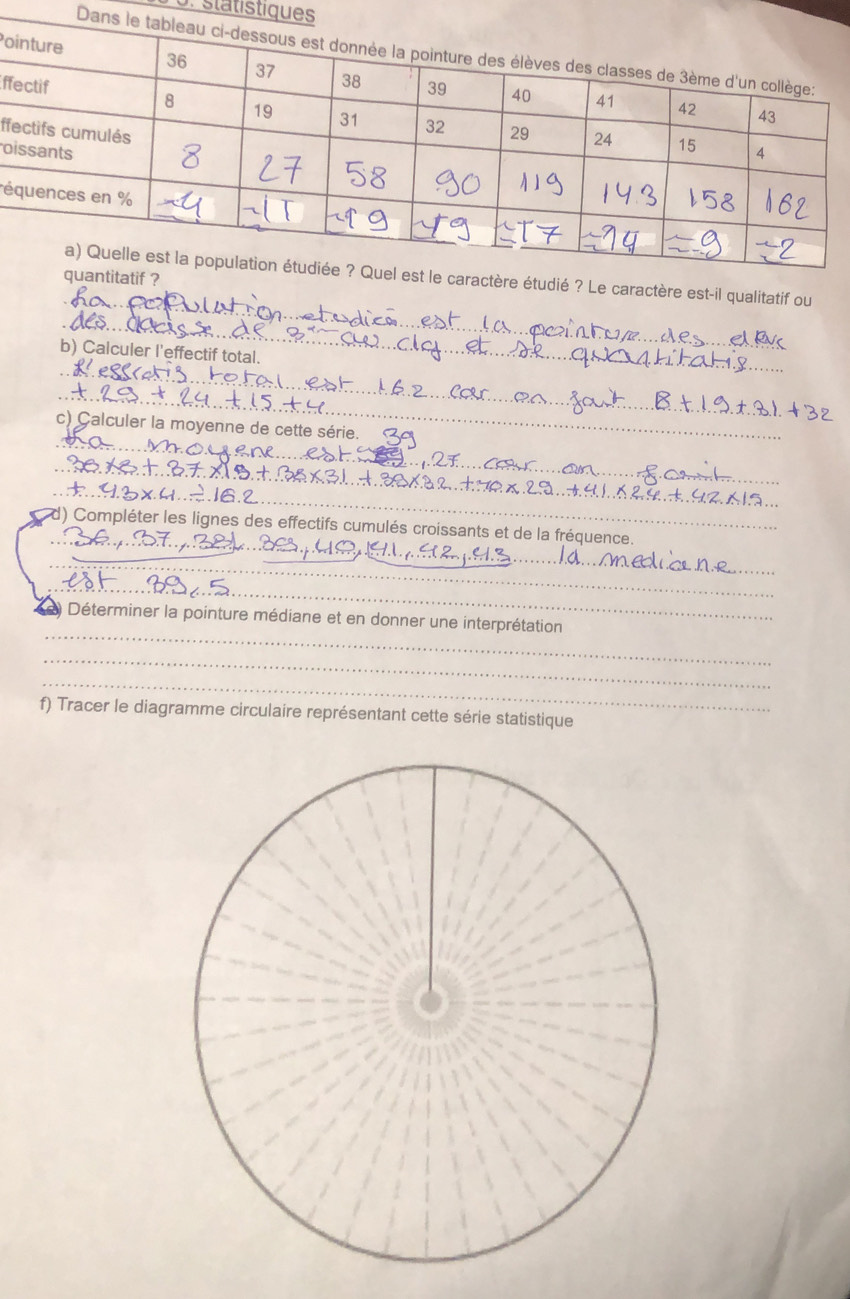 statistiques
Dans le tableau ci-dessous est donnée la pointure des élèves des classes de 3ème d'un collège:
Pointure 36 37 38 39 40 41 42 43
ffectif 8 19 31 32 29 24 15 4
ffectifs cumulés
roissants 8 27 58 90 119 143 158 162
réquences en % ≈4 ≈11 ≈19 ≈19 ≈17 ≈14 ≈9 ≈2
a) Quelle est la population étudiée ? Quel est le caractère étudié ? Le caractère est-il qualitatif ou
quantitatif ?
La population etudiée est la pointure des
des de 3ème du clg et
b) Calculer l'effectif total.
total est 162 car on fait 8+19+31+32
+29+24+15+4
c) Calculer la moyenne de cette série.
La moyene est 39,27 car on fait
36×8+37×19+38×31+39×32+40×29+41×24+42×15
+43×4÷162
d) Compléter les lignes des effectifs cumulés croissants et de la fréquence.
36, 37, 38, 39, 40, 41, 42, 43 la mediane
est 39,5
e) Déterminer la pointure médiane et en donner une interprétation
f) Tracer le diagramme circulaire représentant cette série statistique